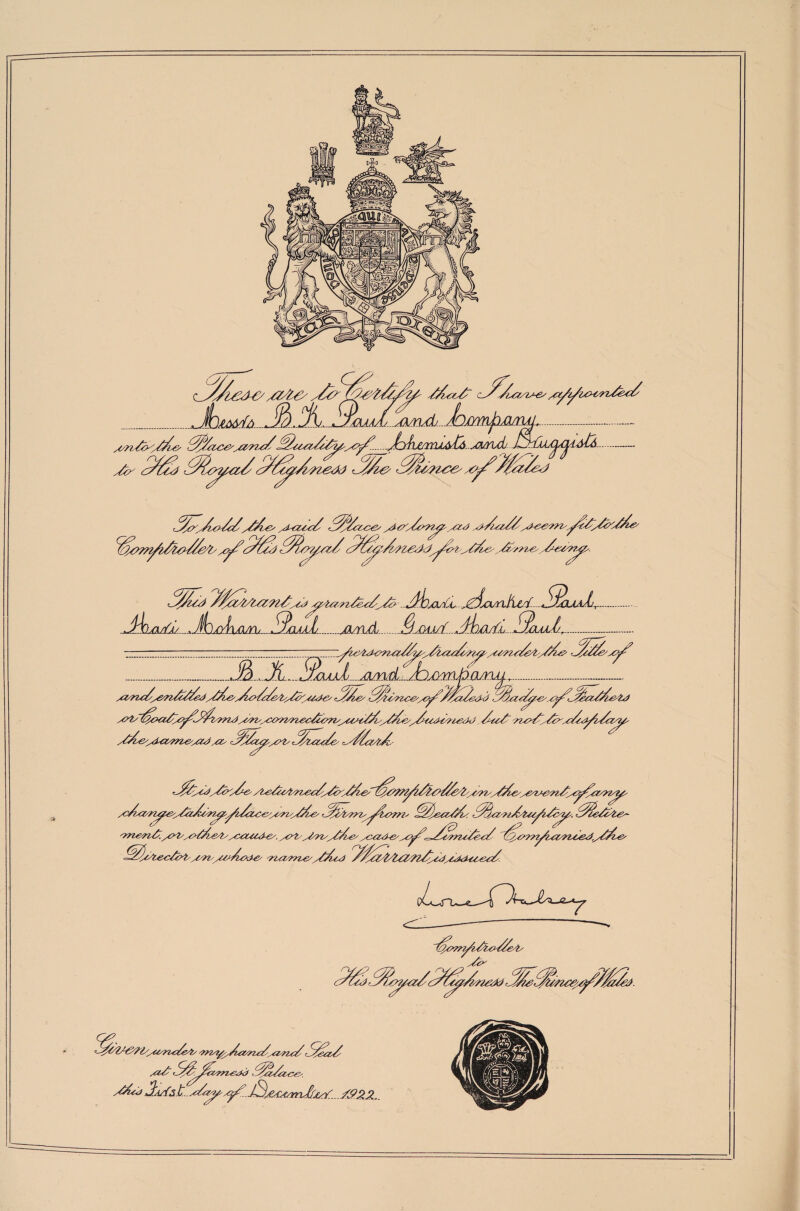 QUI
MAL
Y
PENSE
HONI
ICH
DIEN
These are to Certify that I have appointed
Messrs B. K. Paul and Company.
into the Place and Quality of Chemists and Druggists
to His Royal Highness The Prince of Wales
To hold the said Place so long as shall seem fit to the
Comptroller of His Royal Highness for the time being.
This Warrant is granted to Hari Sanker Paul,
Hari Mohan Paul and Gour Hari Paul,
personally, trading under the Title of
B. K. Paul and Company,
and entitles the holder to use The Prince of Wales's Badge of Feathers
or Coat of Arms in connection with the business but not to display
the same as a Flag or Trade Mark
It is to be returned to the Comptroller in the event of any
change taking place in the Firm from Death, Bankruptcy, Retire-
ment, or other cause, or in the case of Limited Companies, the
Director in whose name this Warrant is issued.
Lionel Halsey
Comptroller
to
His Royal Highness The Prince of Wales.
Given under my hand and Seal
at St. James's Palace,
this First day of December 1922.